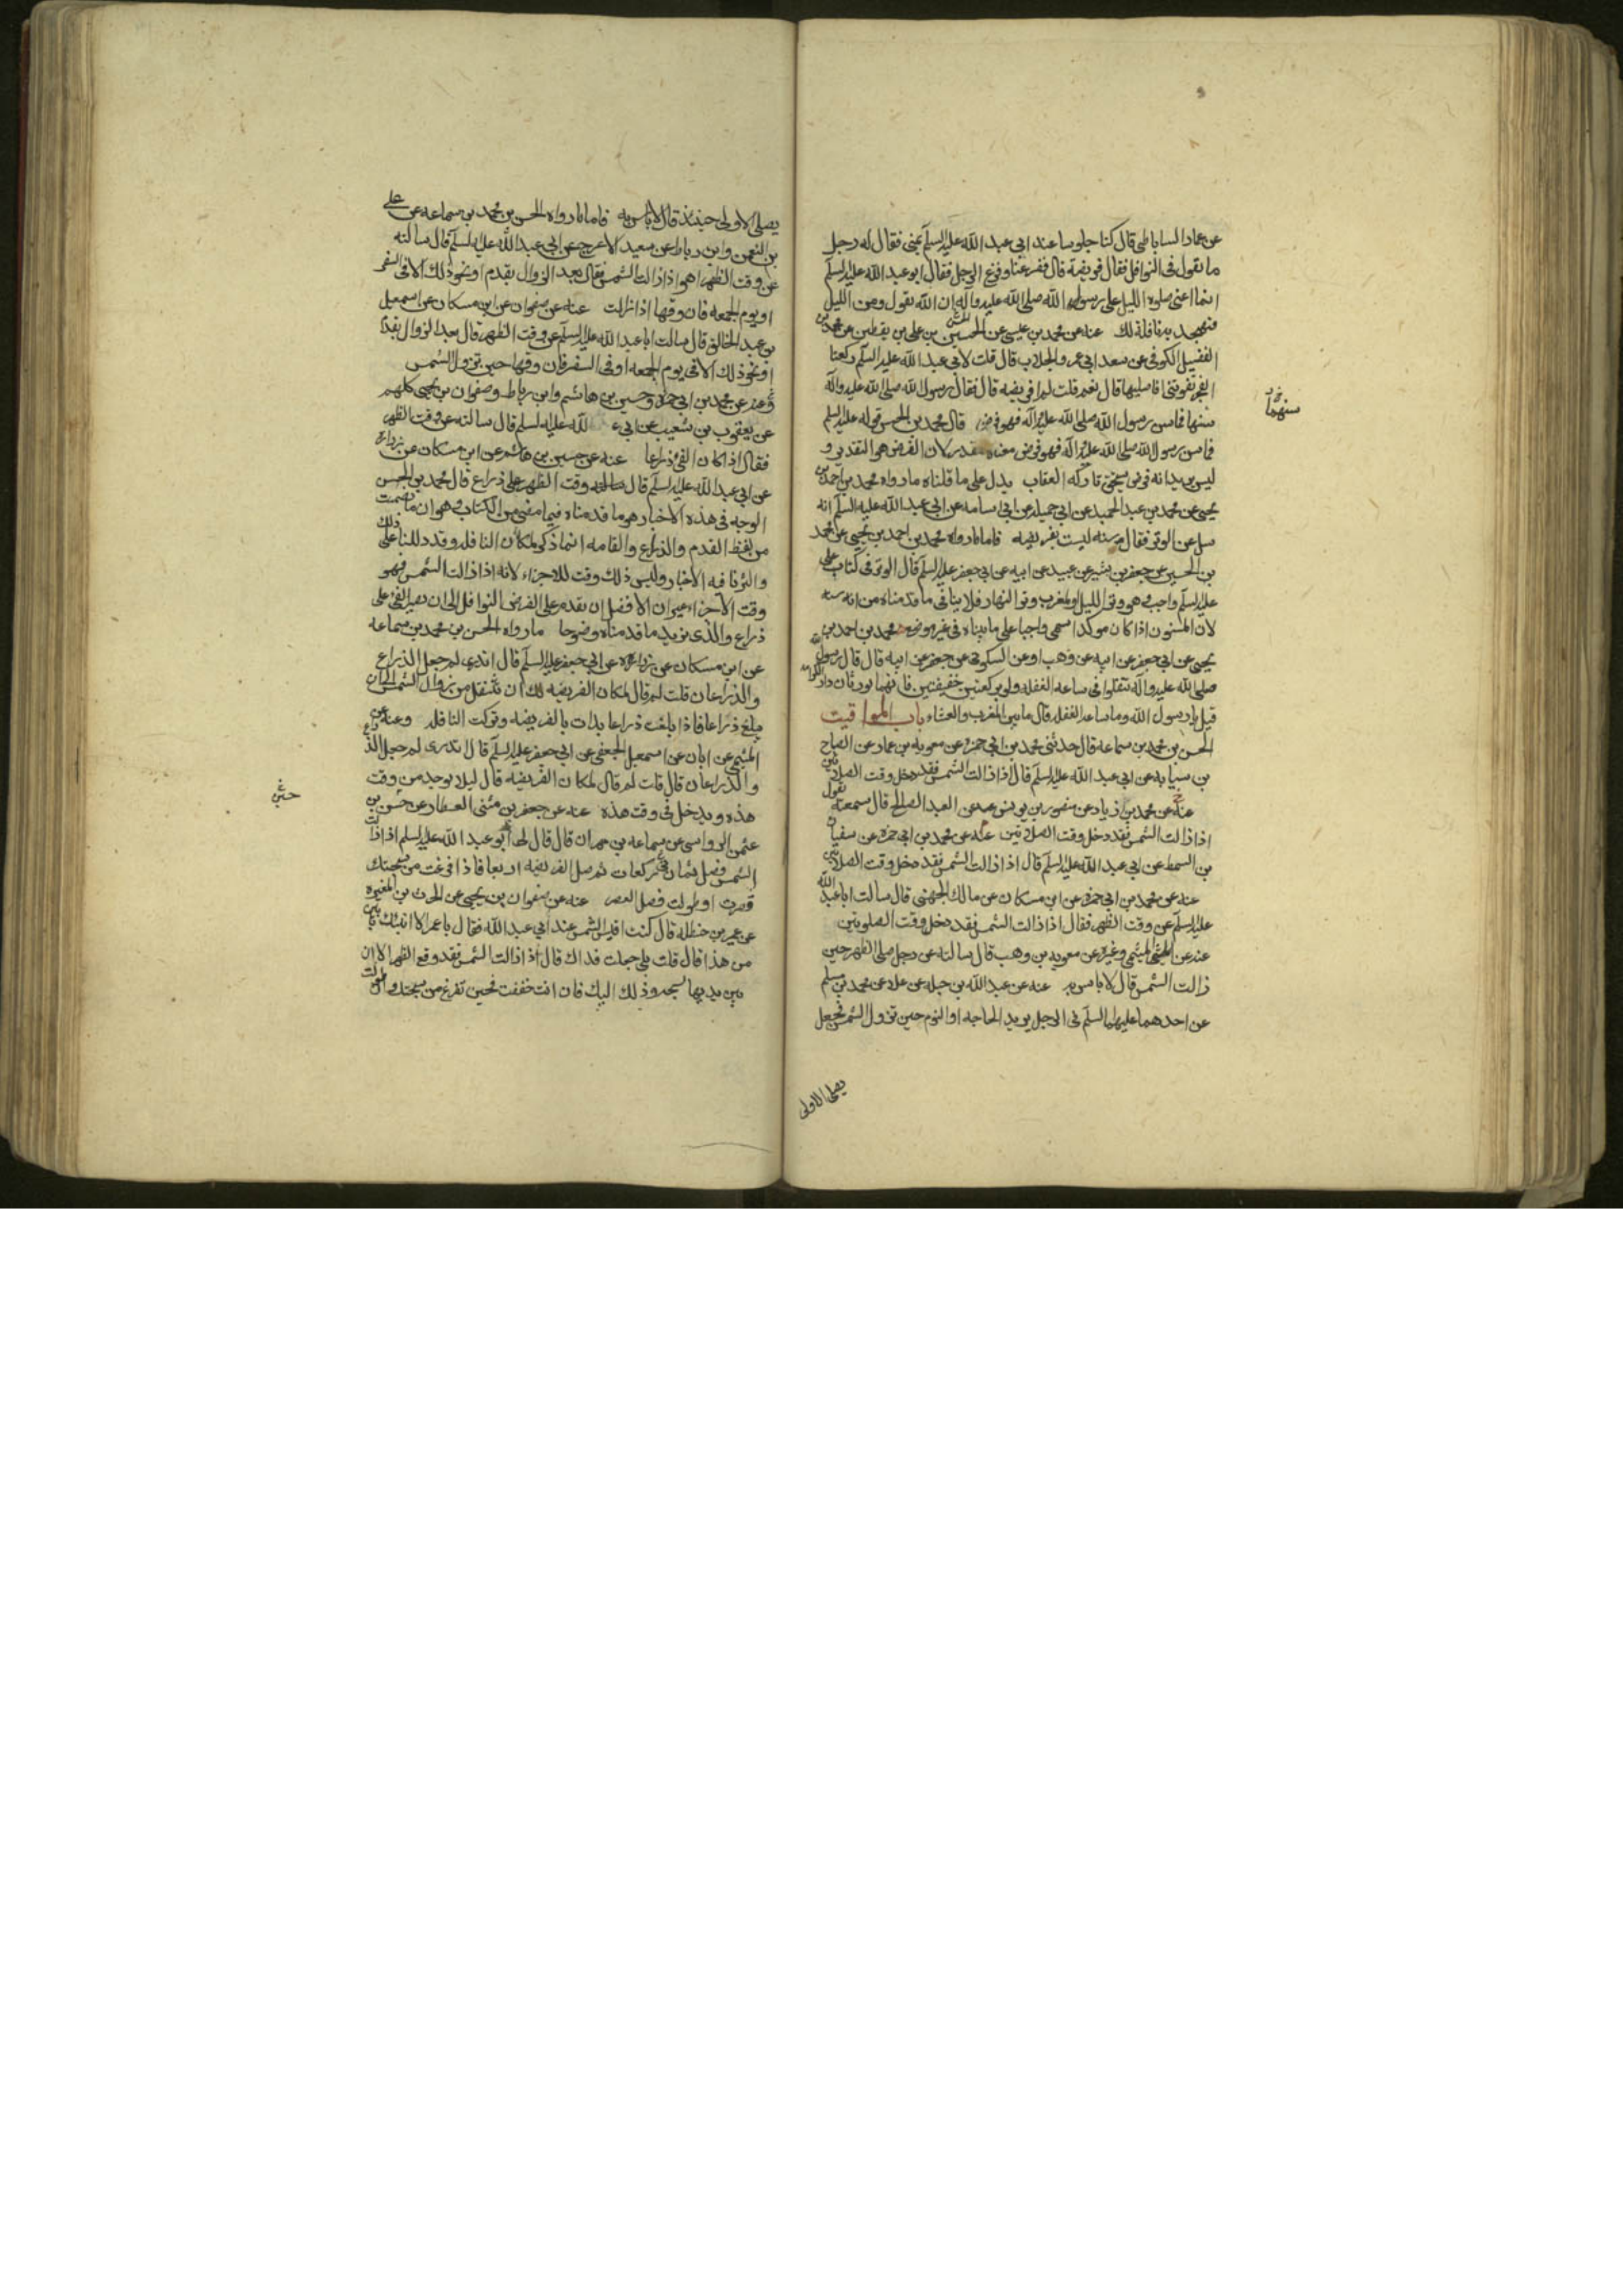 عن عمار الساباطى قال كنا جلوسا عند ابى عبد الله عليه السلم بمنى فقال له رجل
ما تقول فى النوافل فقال فريضة قال ففزعنا وفزع الرجل فقال ابو عبد الله عليه السلم
انما اعنى صلوه الليل على رسول الله صلى الله عليه وآله ان الله يقول ومن الليل
فتهجد به نافلة لك عنه عن محمد بن عيسى عن الحسين بن على بن يقطين عن محمد بن
الفضيل الكوفى عن سعد ابى عمرو الجلاب قال قلت لابى عبد الله عليه السلم ركعتا
الفجر تفوتنى افاصليها قال نعم قلت لم افريضه قال فقال رسول الله صلى الله عليه وآله
سنها فما سن رسول الله صلى الله عليه وآله فهو فرض قال محمد بن الحسن قوله عليه السلم
فما سن رسول الله صلى الله عليه وآله فهو فرض معناه مقدر لان الفرض هو التقدير و
ليس يريد انه فرض يستحق تاركه العقاب يدل على ما قلناه ما رواه محمد بن احمد بن
يحيى عن محمد بن عبد الحميد عن ابى جميله عن ابى اسامه عن ابى عبد الله عليه السلم انه
سل عن الوتر فقال سنه ليست بفريضه فاما ما رواه محمد بن احمد بن يحيى عن محمد
بن الحسين عن جعفر بن بشير عن عبيد عن ابيه عن ابى جعفر عليه السلم قال الوتر فى كتاب على
عليه السلم واجب وهو وتر الليل والمغرب وتر النهار فلا ينافى ما قدمناه من انه سنه
لان المسنون اذا كان موكدا سمى واجبا على ما بيناه فى غير موضع محمد بن احمد بن
يحيى عن ابى جعفر عن ابيه عن وهب او عن السكونى عن جعفر عن ابيه قال قال رسول الله
صلى الله عليه وآله تنفلوا فى ساعه الغفله ولو بركعتين خفيفتين فانهما تورثان دار الكرامه
قيل يا رسول الله وما ساعه الغفله قال ما بين المغرب والعشاء باب المواقيت
الحسن بن محمد بن سماعه قال حدثنى محمد بن ابى حمزه عن معويه بن عمار عن الصباح
بن سيابه عن ابى عبد الله عليه السلم قال اذا زالت الشمس فقد دخل وقت الصلاتين
عنه عن محمد بن زياد عن منصور بن يونس عن العبد الصالح قال سمعته يقول
اذا زالت الشمس فقد دخل وقت الصلاتين عنه عن محمد بن ابى حمزه عن سفيان
بن السمط عن ابى عبد الله عليه السلم قال اذا زالت الشمس فقد دخل وقت الصلاتين
عنه عن محمد بن ابى حمزه عن ابن مسكان عن مالك الجهنى قال سالت ابا عبد الله
عليه السلم عن وقت الظهر فقال اذا زالت الشمس فقد دخل وقت الصلوتين
عنه عن الميثمى وغيره عن معويه بن وهب قال سالته عن رجل صلى الظهر حين
زالت الشمس قال لا باس به عنه عن عبد الله بن جبله عن علاء عن محمد بن مسلم
عن احدهما عليهما السلم فى الرجل يريد الحاجه او النوم حين تزول الشمس فجعل
يصلى الاولى
سنهما
يصلى الاولى حينئذ قال لا باس به فاما ما رواه الحسن بن محمد بن سماعه عن على
بن النعمن وابن رباط عن سعيد الاعرج عن ابى عبد الله عليه السلم قال سالته
عن وقت الظهر اهو اذا زالت الشمس فقال بعد الزوال بقدم او نحو ذلك الا فى السفر
او يوم الجمعه فان وقتها اذا زالت عنه عن صفوان عن ابن مسكان عن اسمعيل
بن عبد الخالق قال سالت ابا عبد الله عليه السلم عن وقت الظهر قال بعد الزوال بقدم
او نحو ذلك الا فى يوم الجمعه او فى السفر فان وقتها حين تزول الشمس
وعنه عن محمد بن ابى حمزه وحسين بن هاشم وابن رباط وصفوان بن يحيى كلهم
عن يعقوب بن شعيب عن ابى ع الله عليه السلم قال سالته عن وقت الظهر
فقال اذا كان الفئ ذراعا عنه عن حسين بن هاشم عن ابن مسكان عن زراره
عن ابى عبد الله عليه السلم قال وقت الظهر على ذراع قال محمد بن الحسن
الوجه فى هذه الاخبار هو ما قدمناه فيما مضى من الكتاب وهو ان ما تضمنت
من لفظ القدم والذراع والقامه انما ذكر لمكان النافله وقد دللنا على ذلك
واثرنا فيه الاخبار وليس ذلك وقت للاجزاء لانه اذا زالت الشمس فهو
وقت الاجزاء غير ان الافضل ان يقدم على الفرض النوافل الى ان يصير الفئ على
ذراع والذى يزيد ما قدمناه وضوحا ما رواه الحسن بن محمد بن سماعه
عن ابن مسكان عن زراره عن ابى جعفر عليه السلم قال اتدرى لم جعل الذراع
والذراعان قلت لم قال لمكان الفريضه لك ان تتنفل من زوال الشمس الى ان
يبلغ ذراعا فاذا بلغت ذراعا بدات بالفريضه وتركت النافله وعنه عن
الميثمى عن ابان عن اسمعيل الجعفى عن ابى جعفر عليه السلم قال اتدرى لم جعل الذراع
والذراعان قال قلت لم قال لمكان الفريضه قال ليلا يوخذ من وقت
هذه ويدخل فى وقت هذه عنه عن جعفر بن مثنى العطار عن حسين بن
عثمن الرواسى عن سماعه بن مهران قال قال لى ابو عبد الله عليه السلم اذا زالت
الشمس فصل ثمان ركعات ثم صل الفريضه اربعا فاذا فرغت من سبحتك
قصرت او طولت فصل العصر عنه عن صفوان بن يحيى عن الحرث بن المغيره
عن عمر بن حنظله قال كنت اقيس الشمس عند ابى عبد الله فقال يا عمر الا انبئك بابين
من هذا قال قلت بلى جعلت فداك قال اذا زالت الشمس فقد وقع الظهر الا ان
بين يديها سبحه وذلك اليك فان انت خففت فحين تفرغ من سبحتك وان طولت